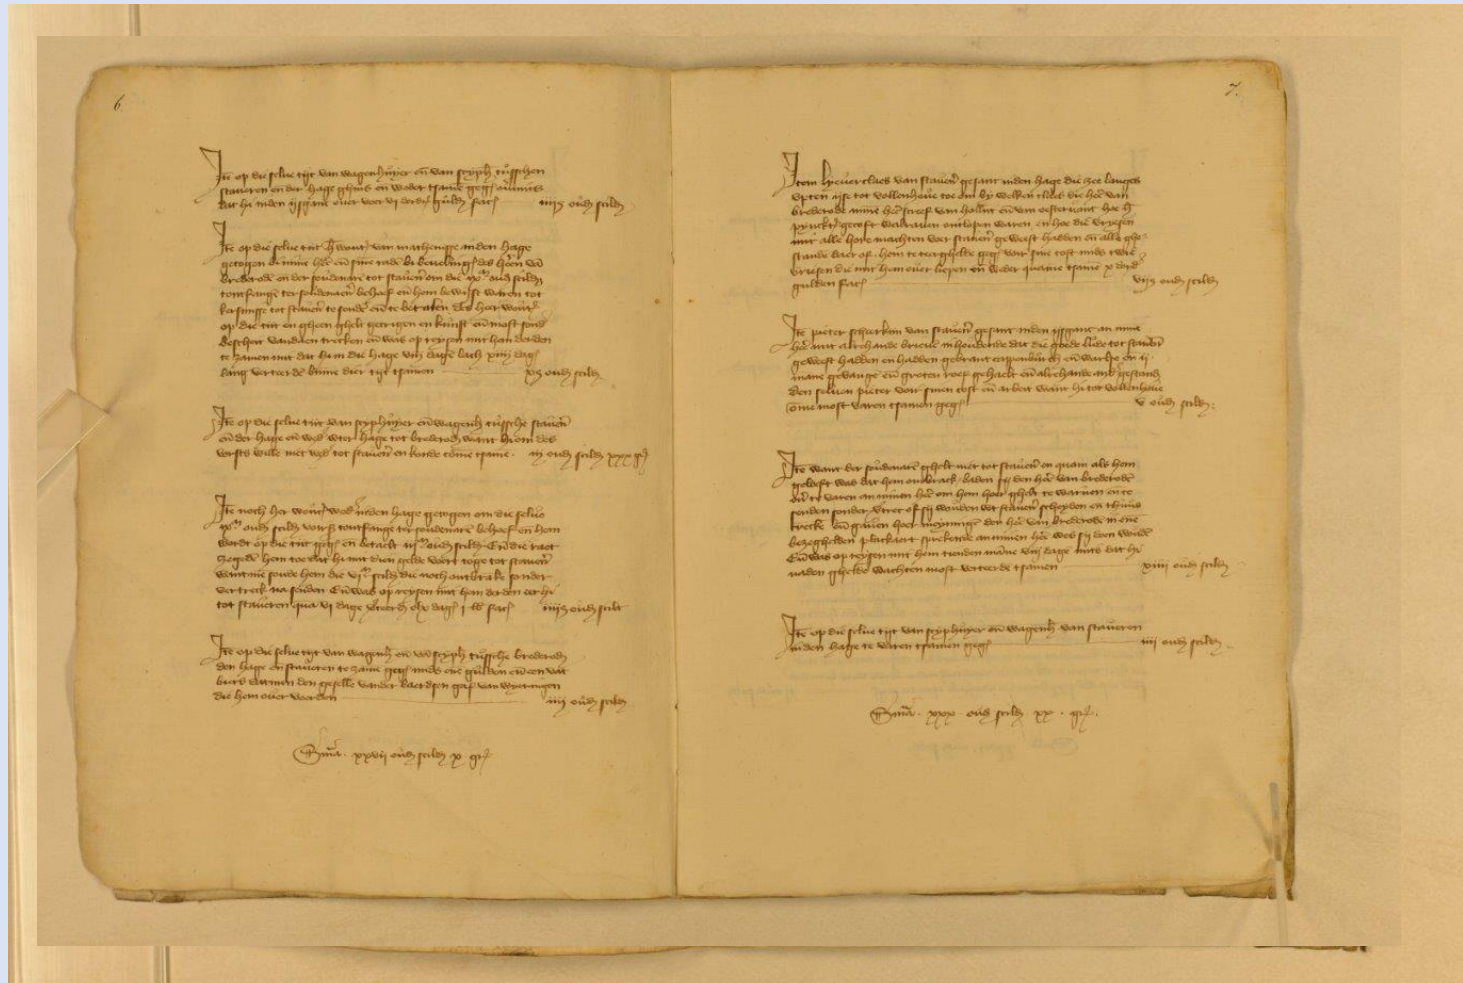 6
Ite op die selue tijt van wagenhuyer en van scyph tusschen
staueren en der hage ghins en weder tsame geg ouermits
dat hi inden ijsganc ouer voer vj dordr guld fac iiij½ oud scild
Ite op die selue tijt h wout van mathenesse inden hage
getogen bi mine he en sine rade bi beuelinge des hen va
brederode en der soudenare tot stauen om die oud scild
tontfange ter soudenaren behoef en hem bewijst waren tot
kersmisse tot stauen te sende en te betalen des her wout
op die tijt en gheen ghelt gecrigen en kunst en most sond
bescheit van daen trecken en was op reysen mit hem derden
te zamen mit dat hi in die hage viij dage lach xiiij dag
lang verteerde binne dier tijt tsamen x½ oud scild
Ite op die selue tijt van scyphuyer en wagenh tussche stauen
en der hage en wed wter hage tot brederod want hi om des
vorsts wille niet wed tot stauen en konde come tsame iij oud scild xxx gr
Ite noch her wout wed inden hage getogen om die selue
oud scild vors tontfange ter soudenare behoef en hem
wordt op die tijt geg en betaelt oud scild En die raet
zegede hem toe dat hi mit dien gelde voert toge tot stauen
want me soude hem die scild die noch ontbrake sonder
vertreck na senden En was op reysen mit hem derden eer hi
tot staueren qua vj dage dag fac iiij½ oud scilt
Ite op die selue tijt van wagenh en va scyph tussche brederod
den hage en staueren te zame geg mids ene gulden en een vat
biers datmen den geselle vander baerdsen gaf van wyeringen
die hem ouer voerden iiij oud scild
Sma xxvij oud scild x gr
7
Item brieuer claes van stauen gesant inden hage die zee langes
vpten ijse tot vollenhoue toe om by welken die he van
brederode mine he greef van hollant en van oesteruant hoe h
gecoft ontlopen waren en hoe die vriesen
mit alle hore machten voer stauen geweest hadden en alle ghe
stande daer of hem te teerghelde geg voir sine cost mids twie
vriesen die mit hem ouer liepen en weder quame tsame x dord
gulden fac vij½ oud scild
Ite pieter scherken van stauen gesant inden ijsganc an mine
he mit alrehande brieue inhoudende dat die goede liede tot stauen
geweest hadden en hadden gebrant en en ij
mane geuange en groten roef gehaelt en alrehande and gestand
den seluen pieter voir sinen cost en arbeit want hi tot vollenhoue
ome most varen tsamen geg v oud scild
Ite want der soudenaren ghelt niet tot stauen en quam als hem
geloeft was dat hem ontbrack baden sij den he van brederode
te varen an minen he om hem hoer ghelt te waruen en te
senden sonder vtrec of sij wouden van stauen scheyden en thuus
trecke en gauen hoer meyninge den he van brederode in ene
bezeghelden plackaert sprekende an minen he wes sij doen wilde
En was op reysen mit hem tienden mane viij dage mits dat hi
naden ghelde wachten most verteerde tsamen xiiij oud scild
Ite op die selue tijt van scyphuyer en wagenh van staueren
inden hage te varen tsamen geg iiij oud scild
Sma xxx oud scild xx gr